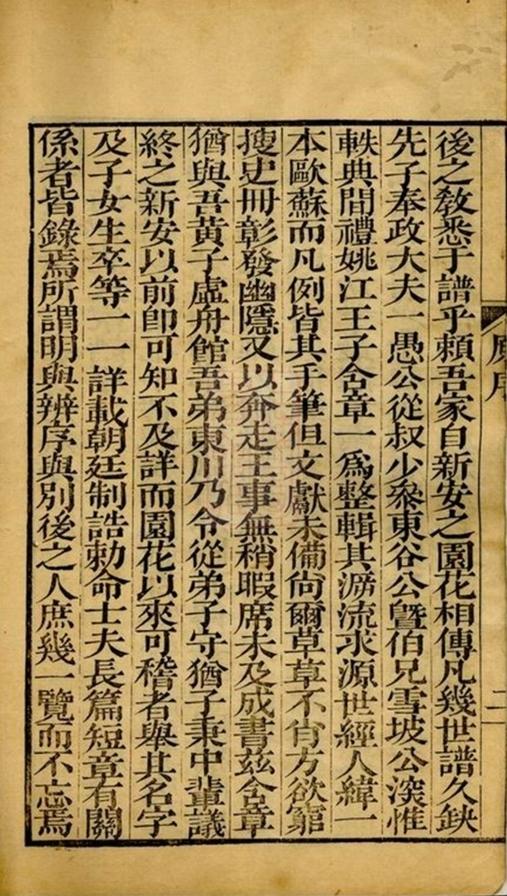 原序
二
後之敎悉于譜乎頼吾家自新安之園花相傳凡幾世譜久鈌
先子奉政大夫一愚公從叔少叅東谷公曁伯兄雪坡公深惟
軼典間禮姚江王子含章一爲整輯其泝流求源世經人緯一
本歐蘇而凡例皆其手筆但文獻未備尙爾草草不肖方欲窮
搜史冊彰發幽隱又以奔走王事無稍暇席未及成書玆含章
猶與吾黄子虛舟館吾弟東川乃令從弟子守猶子秉中輩議
終之新安以前卽可知不及詳而園花以來可稽者舉其名字
及子女生卒等一一詳載朝廷制誥勅命士夫長篇短章有關
係者皆錄焉所謂明與辨序與別後之人庶幾一覽而不忘焉